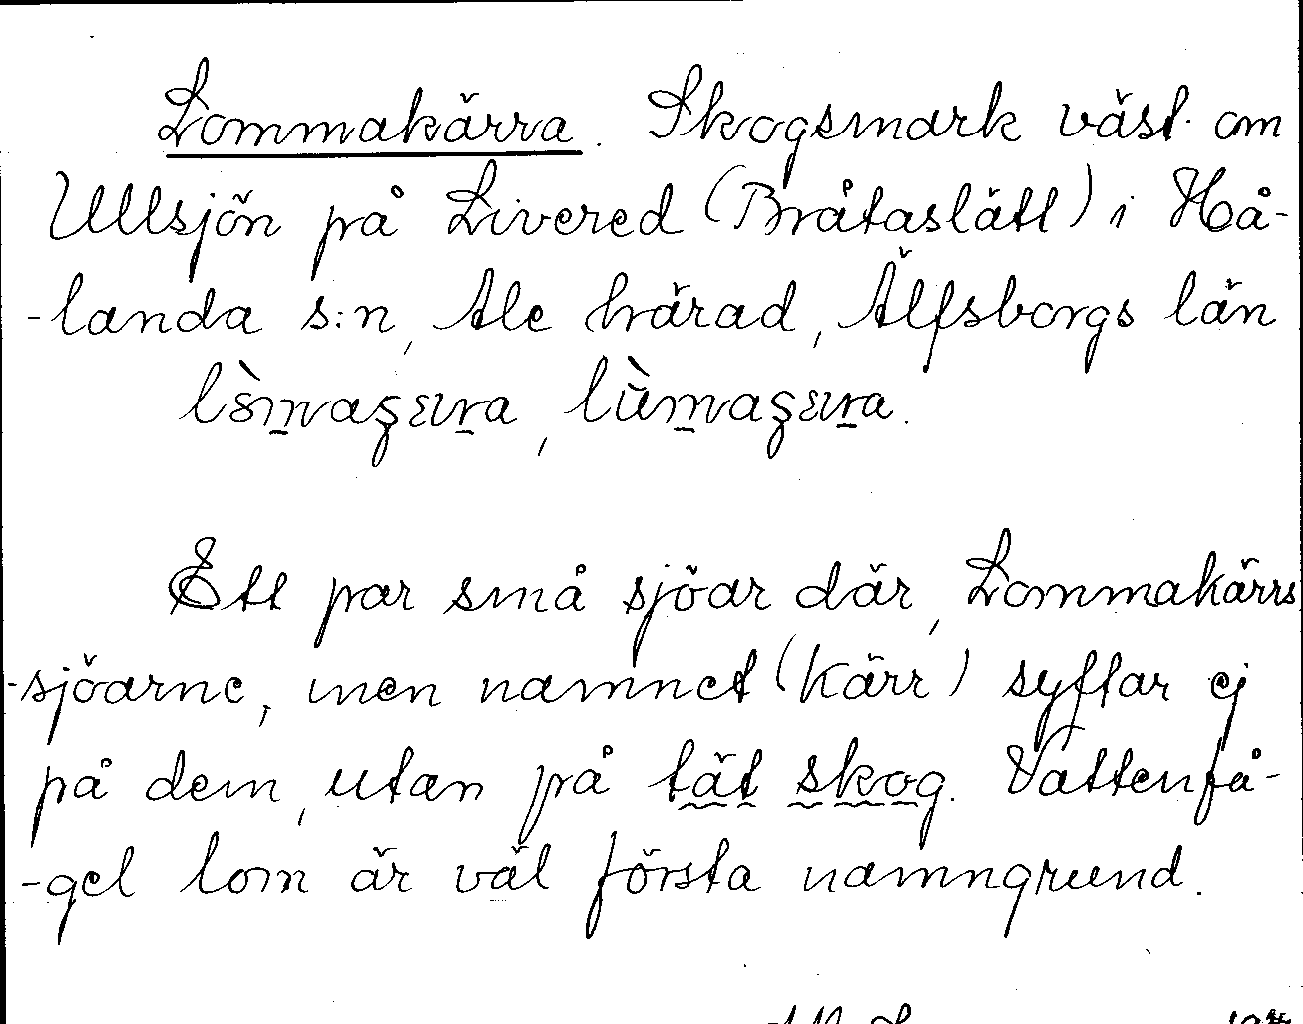 Lommakärra. Skogsmark väst om
Ullsjön på Livered (Bråtaslätt) i Hå-
-landa s:n, Ale härad, Älfsborgs län
Ett par små sjöar där, Lommakärrs
-sjöarne, men namnet (Kärr) syftar ej
på dem, utan på tät skog. Vattenfå-
-gel lom är väl första namngrund.